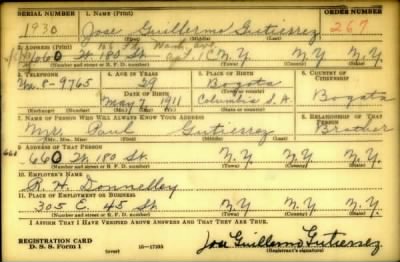 SERIAL NUMBER 1. NAME (Print) ORDER NUMBER
1930 Jose Guillermo Gutierrez 267
(First) (Middle) (Last)
2. ADDRESS (Print)
660 W. 180 St. Apt. 1C N.Y. N.Y. N.Y.
(Number and street or R. F. D. number) (Town) (County) (State)
3. TELEPHONE 4. AGE IN YEARS 5. PLACE OF BIRTH 6. COUNTRY OF CITIZENSHIP
Wa. 8-9765 29 Bogota
DATE OF BIRTH (Town or county)
May 7 1911 Columbia S. A. Bogota
(Exchange) (Number) (Mo.) (Day) (Yr.) (State or country)
7. NAME OF PERSON WHO WILL ALWAYS KNOW YOUR ADDRESS 8. RELATIONSHIP OF THAT PERSON
Mr. Paul Gutierrez Brother
(Mr., Mrs., Miss) (First) (Middle) (Last)
9. ADDRESS OF THAT PERSON
660 W. 180 St. N.Y. N.Y. N.Y.
(Number and street or R. F. D. number) (Town) (County) (State)
10. EMPLOYER'S NAME
R. H. Donnelley
11. PLACE OF EMPLOYMENT OR BUSINESS
305 E. 45 St. N.Y. N.Y. N.Y.
(Number and street or R. F. D. number) (Town) (County) (State)
I AFFIRM THAT I HAVE VERIFIED ABOVE ANSWERS AND THAT THEY ARE TRUE.
REGISTRATION CARD
D. S. S. Form 1 (over) 16—17105 Jose Guillermo Gutierrez
(Registrant's signature)